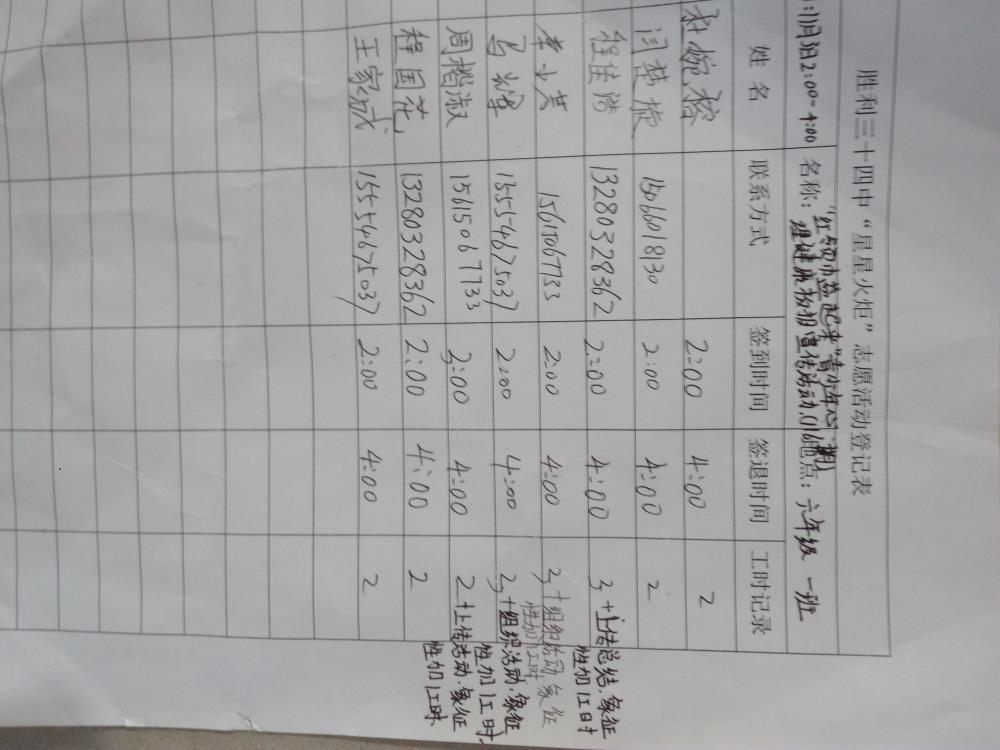 胜利三十四中“星星火炬”志愿活动登记表
:11月3日2:00-4:00 名称:“红领巾益起来”青少年心理健康板报宣传活动.(16期) 地点: 六年级 一班
姓名 联系方式 签到时间 签退时间 工时记录
杜婉榕 2:00 4:00 2
闫楚旋 15066018130 2:00 4:00 2
程佳浩 13280328362 2:00 4:00 3 +上传总结.象征性加1工时
李少英 15615067733 2:00 4:00 3 +组织活动 象征性加1工时
马辉 15554675037 2:00 4:00 2 +组织活动.象征性加1工时.
周楷淑 15615067733 2:00 4:00 2 +上传活动.象征性加1工时.
程国花 13280328362 2:00 4:00 2
王家斌 15554675037 2:00 4:00 2